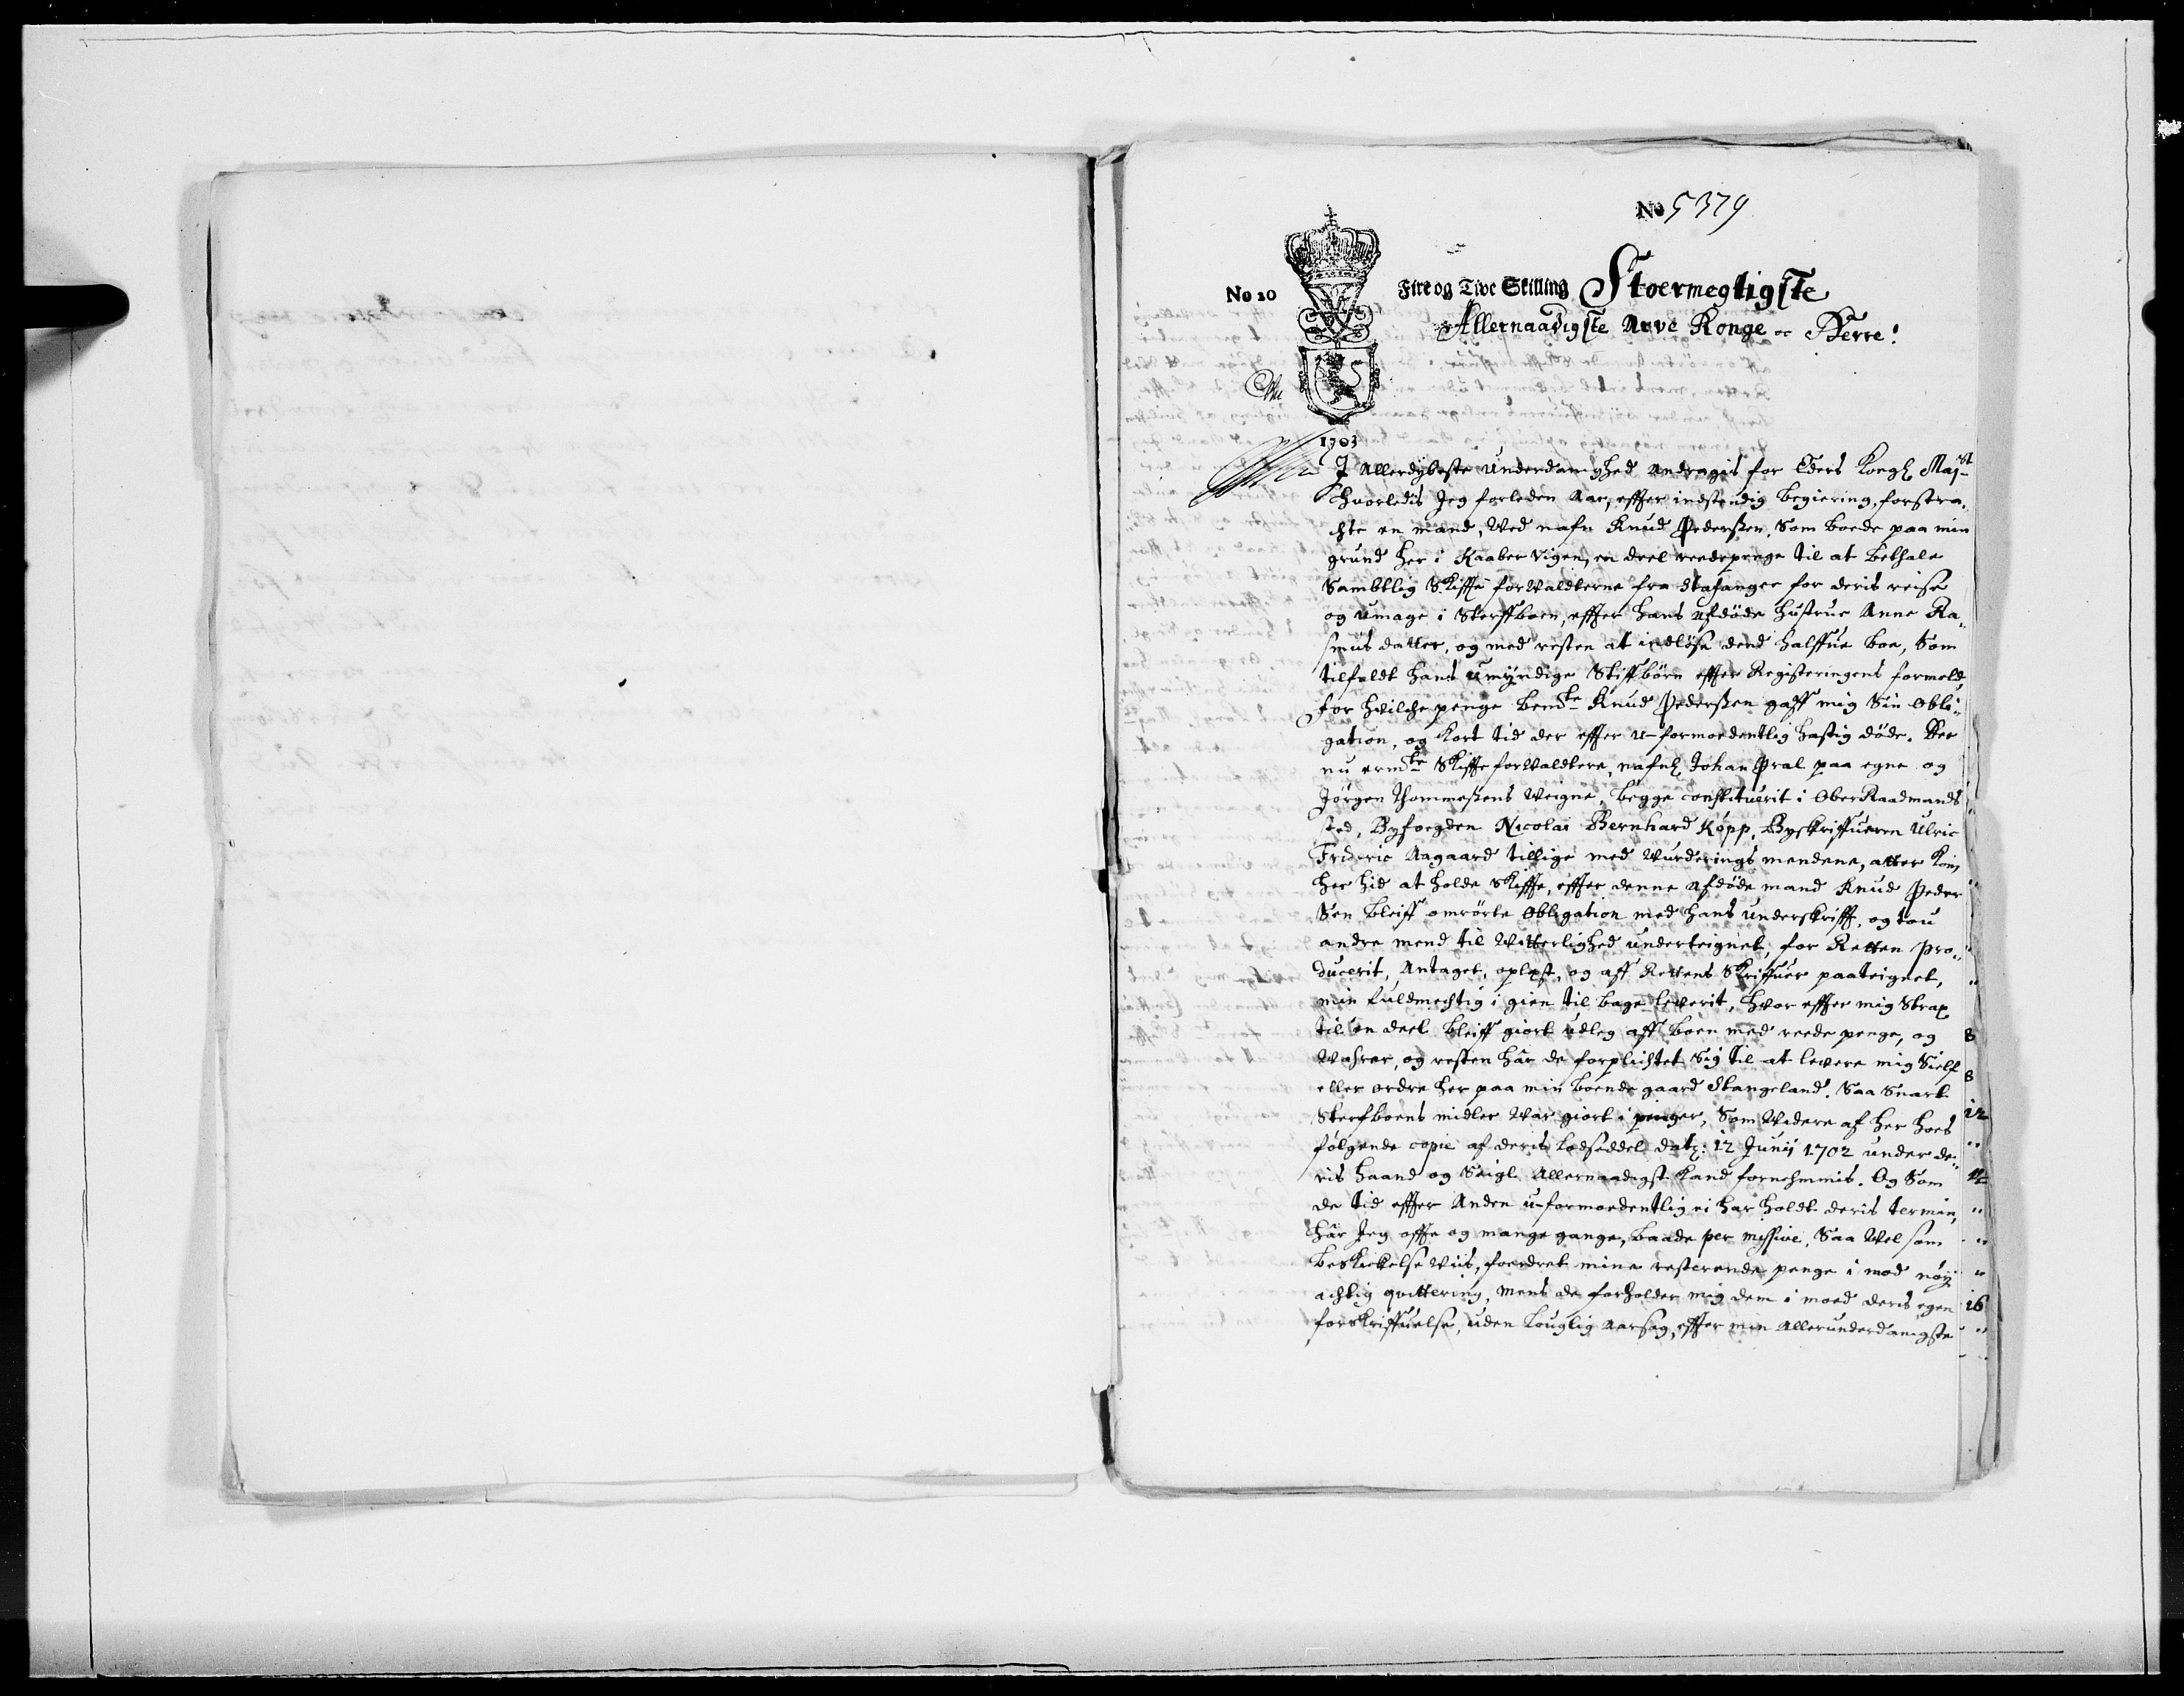 No 5379
No 20 Fire og Tive Skilling Stoermegtigste
Allernaadigste Arve Konge oc Herre!
1703
I Allerdybeste underdanighed Andragis for Eders Kongl Maj:st
hvorledis Jeg forleden Aar, effter indstendig begiering, forstra,
chte en mand, Ved nafn Knud Pederßen, Som boede paa min
grund her i Raaber Vigen, en deel reede penge til at bethale
Sambtlig Skiffte forvaldterne fra Stafanger for deris reise
og umage i Sterffboen, effter hans afdøde hustrue Anne Ra,,
smus datter, og med resten at indløse dend halffue boe, Som
tilfaldt hans umyndige Stiffbørn effter Registeringens formeld,
for hvilche penge bemte Knud Pederßen gaff mig Sin obli,,
gation, og kort tid der effter u-formoedentlig hastig døde. Der
nu ermte Skiffte forvaldtere, nafnl Johan Pral paa egne og
Jørgen Thommeßens Veigne, begge constituerit i Ober Raadmands
sted, Byfoegden Nicolai Bernhard Köpp, Byskriffueren Ulric
Frideric Aagaard tillige med Vurderings mendene, atter kom
her hid at holde Skiffte, effter denne afdøde mand Knud Peder
Sen bleiff omrørte obligation med hans underskrifft, og tou
andre mend til Vitterlighed underteignet, for Retten pro,,
ducerit, Antaget, oplest, og aff Rettens Skriffuer paateignet,
min fuldmechtig i gien til bage leverit, hvor effter mig Strax
til en deel bleiff giort udleg aff boen med reede penge, og 8
Wahrer, og resten har de forplichtet Sig til at levere mig Sielf 8
eller ordre her paa min boende gaard Stangeland. Saa Snart
Sterfboens midler War giort i penger, Som Videre af her hoes 12
følgende copie af deris Lodseddel dat: 12 Junij 1702 under de,,
ris haand og Seigl Allernaadigst kand fornehmmis. Og Som
de tid effter Anden u-formoedentlig ei har holdt deris termin,
har Jeg offte og mange gange, baade per missive, Saa Vel som
beskickelse Viis, foerdret mine resterende penge i mod nøy
achtig qvittering, mens de forholder mig dem i moed deris egen 16
forskriffuelse, uden Louglig Aarsag, effter min Allerunderdanigste